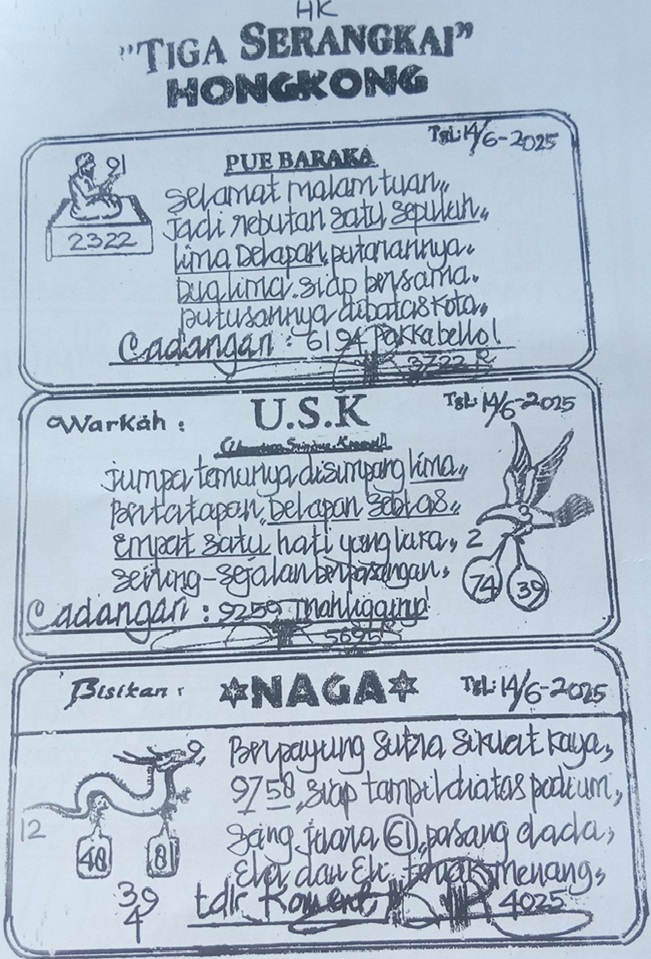 HK
"TIGA SERANGKAI"
HONGKONG
Tgl: 14/6-2025
PUE BARAKA
91
2322
Selamat malam tuan,,
Jadi rebutan satu sepuluh,,
Lima Delapan, putarannya.
Dua lima. siap bersama.
putusannya dibatas kota,,
Cadangan : 6194 Pakkabello!
3722
Warkah :
U.S.K
Tgl: 14/6-2025
Jumpa temunya disimpang lima,,
Bertatapan, Delapan Seblas,,
Empat satu hati yang lara,,
Seiring-Sejalan berpasangan,
2
74 39
Cadangan : 9259 mahligainya!
5695
Bisikan :
NAGA
Tgl: 14/6-2025
9
12
40 81
39
4
Berpayung Sutra Sikuat Kaya,
9758, siap tampil diatas podium,
Sang juara 61, pasang dada,
menang,
4025